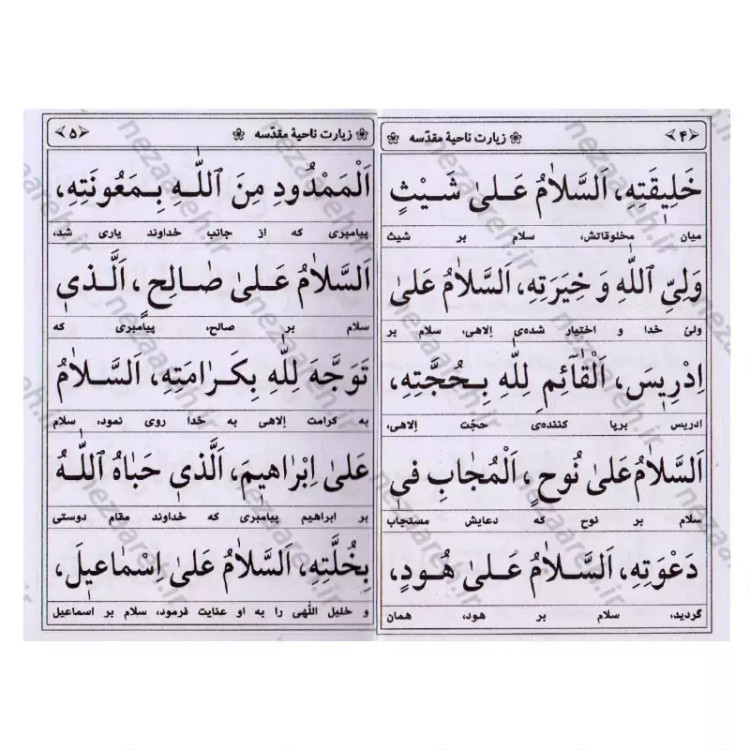 ۴ زیارت ناحیهٔ مقدّسه
خَلِیقَتِهِ، اَلسَّلامُ عَلیٰ شَیْثٍ
میان مخلوقاتش، سلام بر شیث
وَلِیِّ ٱللّٰهِ وَ خِیَرَتِهِ، اَلسَّلامُ عَلیٰ
ولیّ خدا و اختیار شده‌ی إلاهی، سلام بر
اِدْرِیسَ، اَلْقٰآئِمِ لِلّٰهِ بِحُجَّتِهِ،
ادریس برپا کننده‌ی حجّت إلاهی،
اَلسَّلامُ عَلیٰ نُوحٍ، اَلْمُجٰابِ فی
سلام بر نوح که دعایش مستجاب
دَعْوَتِهِ، اَلسَّلامُ عَلیٰ هُودٍ،
گردید، سلام بر هود، همان
۵ زیارت ناحیهٔ مقدّسه
اَلْمَمْدُودِ مِنَ ٱللّٰهِ بِمَعُونَتِهِ،
پیامبری که از جانب خداوند یاری شد،
اَلسَّلامُ عَلیٰ صٰالِحٍ، اَلَّذی
سلام بر صالح، پیامبری که
تَوَجَّهَ لِلّٰهِ بِکَرٰامَتِهِ، اَلسَّلامُ
به کرامت إلاهی به خدا روی نمود، سلام
عَلیٰ اِبْرٰاهیمَ، اَلَّذی حَبٰاهُ ٱللّٰهُ
بر ابراهیم پیامبری که خداوند مقام دوستی
بِخُلَّتِهِ، اَلسَّلامُ عَلیٰ اِسْمٰاعیلَ،
و خلیل اللّهی را به او عنایت فرمود، سلام بر اسماعیل
nezaareh.ir